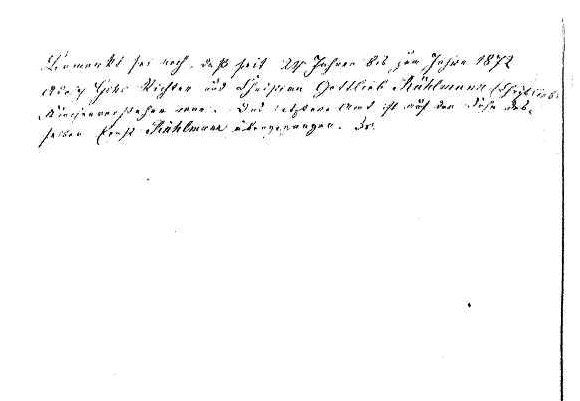 Bemerkt sei noch, daß seit 24 Jahren bis zum Jahre 1872
Richter und Christian Gottlieb Kühlmann
Kirchenvorsteher war. Das letztere Amt ist auf den Sohn des-
selben Ernst Kühlmann übergegangen.